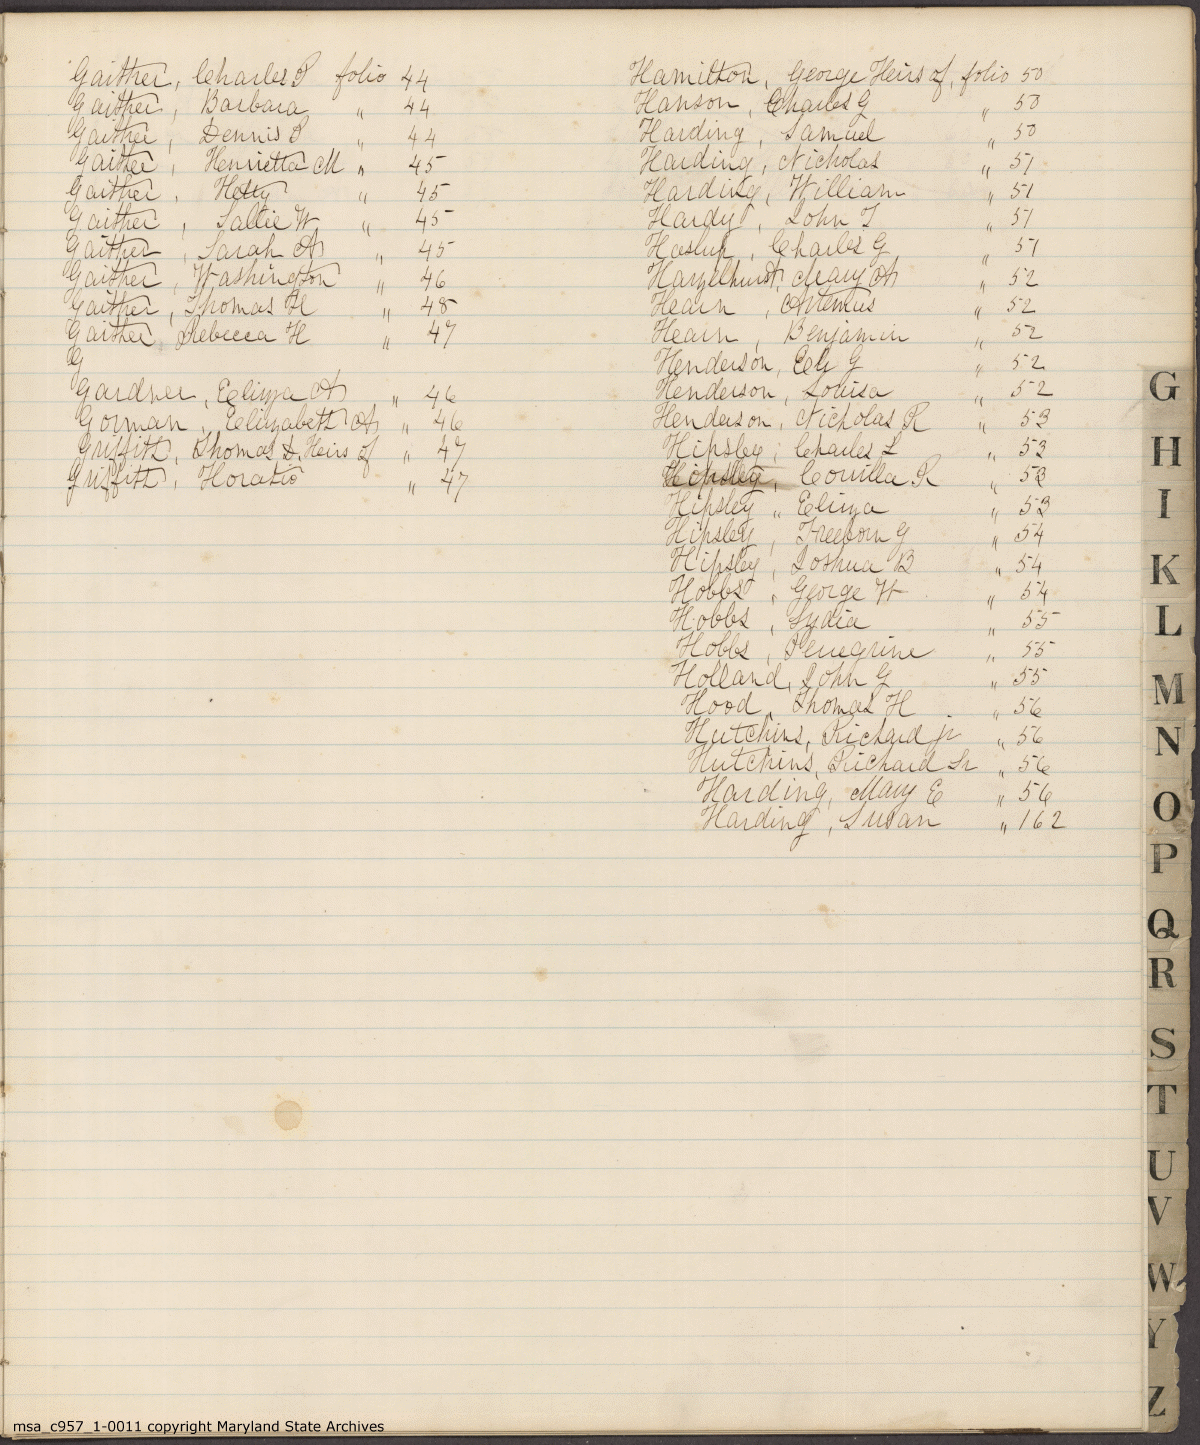 Gaither, Charles R folio 44
Gaither, Barbara " 44
Gaither, Dennis P " 44
Gaither, Henrietta M " 45
Gaither, Hetty " 45
Gaither, Sallie W " 45
Gaither, Sarah A " 45
Gaither, Washington " 46
Gaither, Thomas H " 48
Gaither, Rebecca H " 47
G
Gardner, Eliza A " 46
Gorman, Elizabeth A " 46
Griffith, Thomas D, Heirs of " 47
Griffith, Horatio " 47
Hamilton, George Heirs of, folio 50
Hanson, Charles G " 50
Harding, Samuel " 50
Harding, Nicholas " 51
Harding, William " 51
Hardy, John T " 51
Haslup, Charles G " 51
Hazelhurst, Mary A " 52
Hearn, Artemus " 52
Hearn, Benjamin " 52
Henderson, G " 52
Henderson, Louisa " 52
Henderson, Nicholas R " 53
Hipsley, Charles L " 53
Hipsley, Corilla R " 53
Hipsley " Eliza " 53
Hipsley, Freeborn G " 54
Hipsley, Joshua B " 54
Hobbs, George W " 54
Hobbs, Lydia " 55
Hobbs, Peregrine " 55
Holland, John G " 55
Hood, Thomas H " 56
Hutchins, Richard jr " 56
Hutchins, Richard Sr " 56
Harding, Mary E " 56
Harding, Susan " 162
G
H
I
K
L
M
N
O
P
Q
R
S
T
U
V
W
Y
Z
msa_c957_1-0011 copyright Maryland State Archives